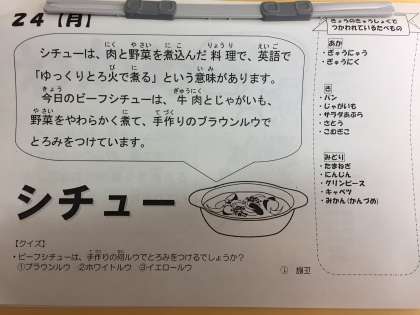 24【月】
シチューは、肉と野菜を煮込んだ料理で、英語で
「ゆっくりとろ火で煮る」という意味があります。
今日のビーフシチューは、牛肉とじゃがいも、
野菜をやわらかく煮て、手作りのブラウンルウで
とろみをつけています。
シチュー
【クイズ】
・ビーフシチューは、手作りの何ルウでとろみをつけるでしょうか?
①ブラウンルウ ②ホワイトルウ ③イエロールウ
答え ①
きょうのきゅうしょくで
つかわれているたべもの
あか
・ぎゅうにゅう
・ぎゅうにく
き
・パン
・じゃがいも
・サラダあぶら
・さとう
・こむぎこ
みどり
・たまねぎ
・にんじん
・グリンピース
・キャベツ
・みかん(かんづめ)